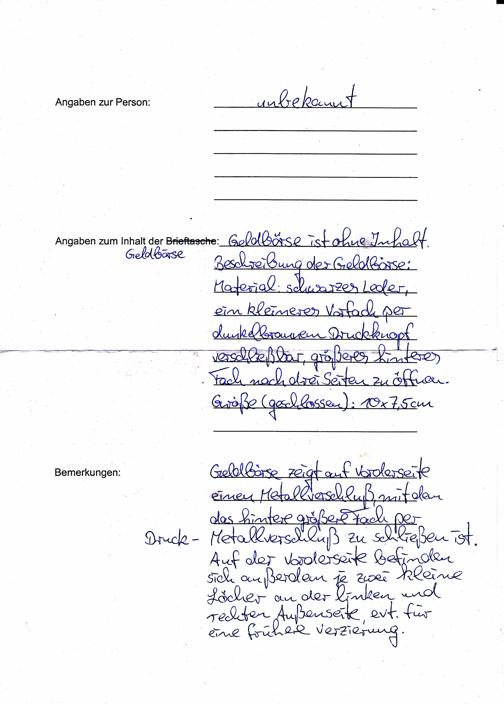 Angaben zur Person: unbekannt
Angaben zum Inhalt der Brieftasche: Geldbörse ist ohne Inhalt.
Geldbörse
Beschreibung der Geldbörse:
Material: schwarzes Leder,
ein kleineres Vorfach per
dunkelbraunem Druckknopf
verschließbar, größeres hinteres
Fach nach drei Seiten zu öffnen.
Größe (geschlossen): 10x7,5cm
Bemerkungen: Geldbörse zeigt auf Vorderseite
einen Metallverschluß, mit dem
das hintere größere Fach per
Druck- Metallverschluß zu schließen ist.
Auf der Vorderseite befinden
sich außerdem je zwei kleine
Löcher an der linken und
rechten Außenseite, evt. für
eine frühere Verzierung.